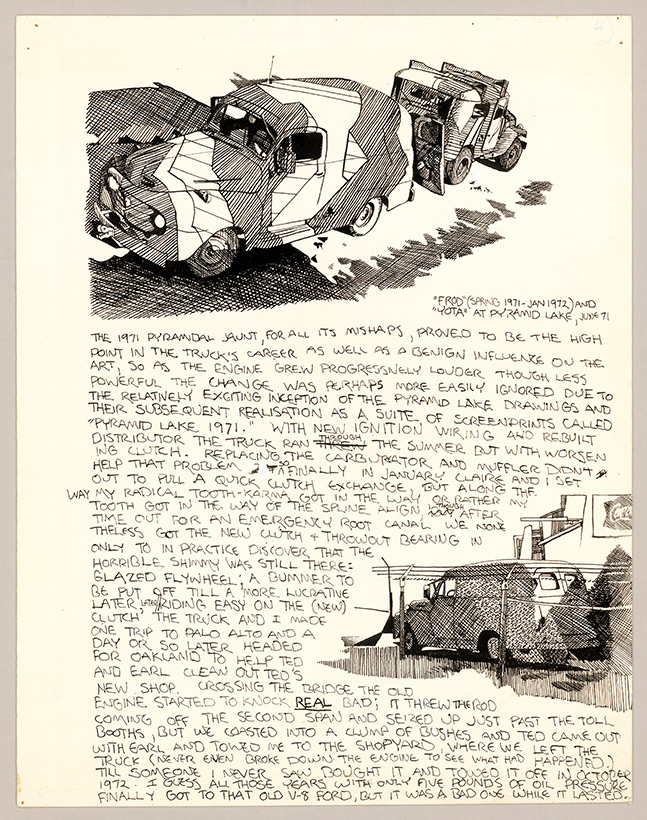 "FROD" (SPRING 1971-JAN 1972) AND
"YOTA" AT PYRAMID LAKE, JUNE 71
THE 1971 PYRAMIDAL JAUNT, FOR ALL ITS MISHAPS, PROVED TO BE THE HIGH
POINT IN THE TRUCK'S CAREER AS WELL AS A BENIGN INFLUENCE ON THE
ART, SO AS THE ENGINE GREW PROGRESSIVELY LOUDER THOUGH LESS
POWERFUL THE CHANGE WAS PERHAPS MORE EASILY IGNORED DUE TO
THE RELATIVELY EXCITING INCEPTION OF THE PYRAMID LAKE DRAWINGS AND
THEIR SUBSEQUENT REALISATION AS A SUITE OF SCREENPRINTS CALLED
"PYRAMID LAKE 1971." WITH NEW IGNITION WIRING AND REBUILT
DISTRIBUTOR THE TRUCK RAN THROUGH THE SUMMER BUT WITH WORSEN
ING CLUTCH. REPLACING THE CARBURATOR AND MUFFLER DIDN'T
HELP THAT PROBLEM FINALLY IN JANUARY CLAIRE AND I SET
OUT TO PULL A QUICK CLUTCH EXCHANGE, BUT ALONG THE
WAY MY RADICAL TOOTH-KARMA GOT IN THE WAY OR RATHER MY
TOOTH GOT IN THE WAY OF THE SPLINE ALIGN, AFTER
TIME OUT FOR AN EMERGENCY ROOT CANAL WE NONE
THELESS GOT THE NEW CLUTCH + THROWOUT BEARING IN
ONLY TO IN PRACTICE DISCOVER THAT THE
HORRIBLE SHIMMY WAS STILL THERE:
GLAZED FLYWHEEL; A BUMMER TO
BE PUT OFF TILL A 'MORE LUCRATIVE
LATER,' RIDING EASY ON THE (NEW)
CLUTCH, THE TRUCK AND I MADE
ONE TRIP TO PALO ALTO AND A
DAY OR SO LATER HEADED
FOR OAKLAND TO HELP TED
AND EARL CLEAN OUT TED'S
NEW SHOP. CROSSING THE BRIDGE THE OLD
ENGINE STARTED TO KNOCK REAL BAD; IT THREW THE ROD
COMING OFF THE SECOND SPAN AND SEIZED UP JUST PAST THE TOLL
BOOTHS, BUT WE COASTED INTO A CLUMP OF BUSHES AND TED CAME OUT
WITH EARL AND TOWED ME TO THE SHOPYARD, WHERE WE LEFT THE
TRUCK (NEVER EVEN BROKE DOWN THE ENGINE TO SEE WHAT HAD HAPPENED)
TILL SOMEONE I NEVER SAW BOUGHT IT AND TOWED IT OFF IN OCTOBER
1972. I GUESS ALL THOSE YEARS WITH ONLY FIVE POUNDS OF OIL PRESSURE
FINALLY GOT TO THAT OLD V-8 FORD, BUT IT WAS A BAD ONE WHILE IT LASTED.